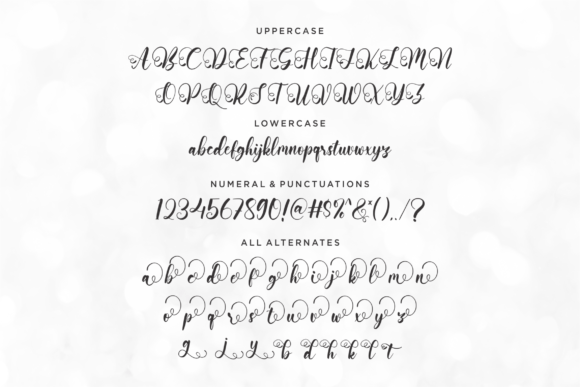 UPPERCASE
ABCDEFGHIJKLMN
OPQRSTUVWXYZ
LOWERCASE
abcdefghijklmnopqrstuvwxyz
NUMERAL & PUNCTUATIONS
1234567890!@#$%^&*(),./?
ALL ALTERNATES
abcdefghijklmn
opqrstuvwxyz
g j y b d h k l t